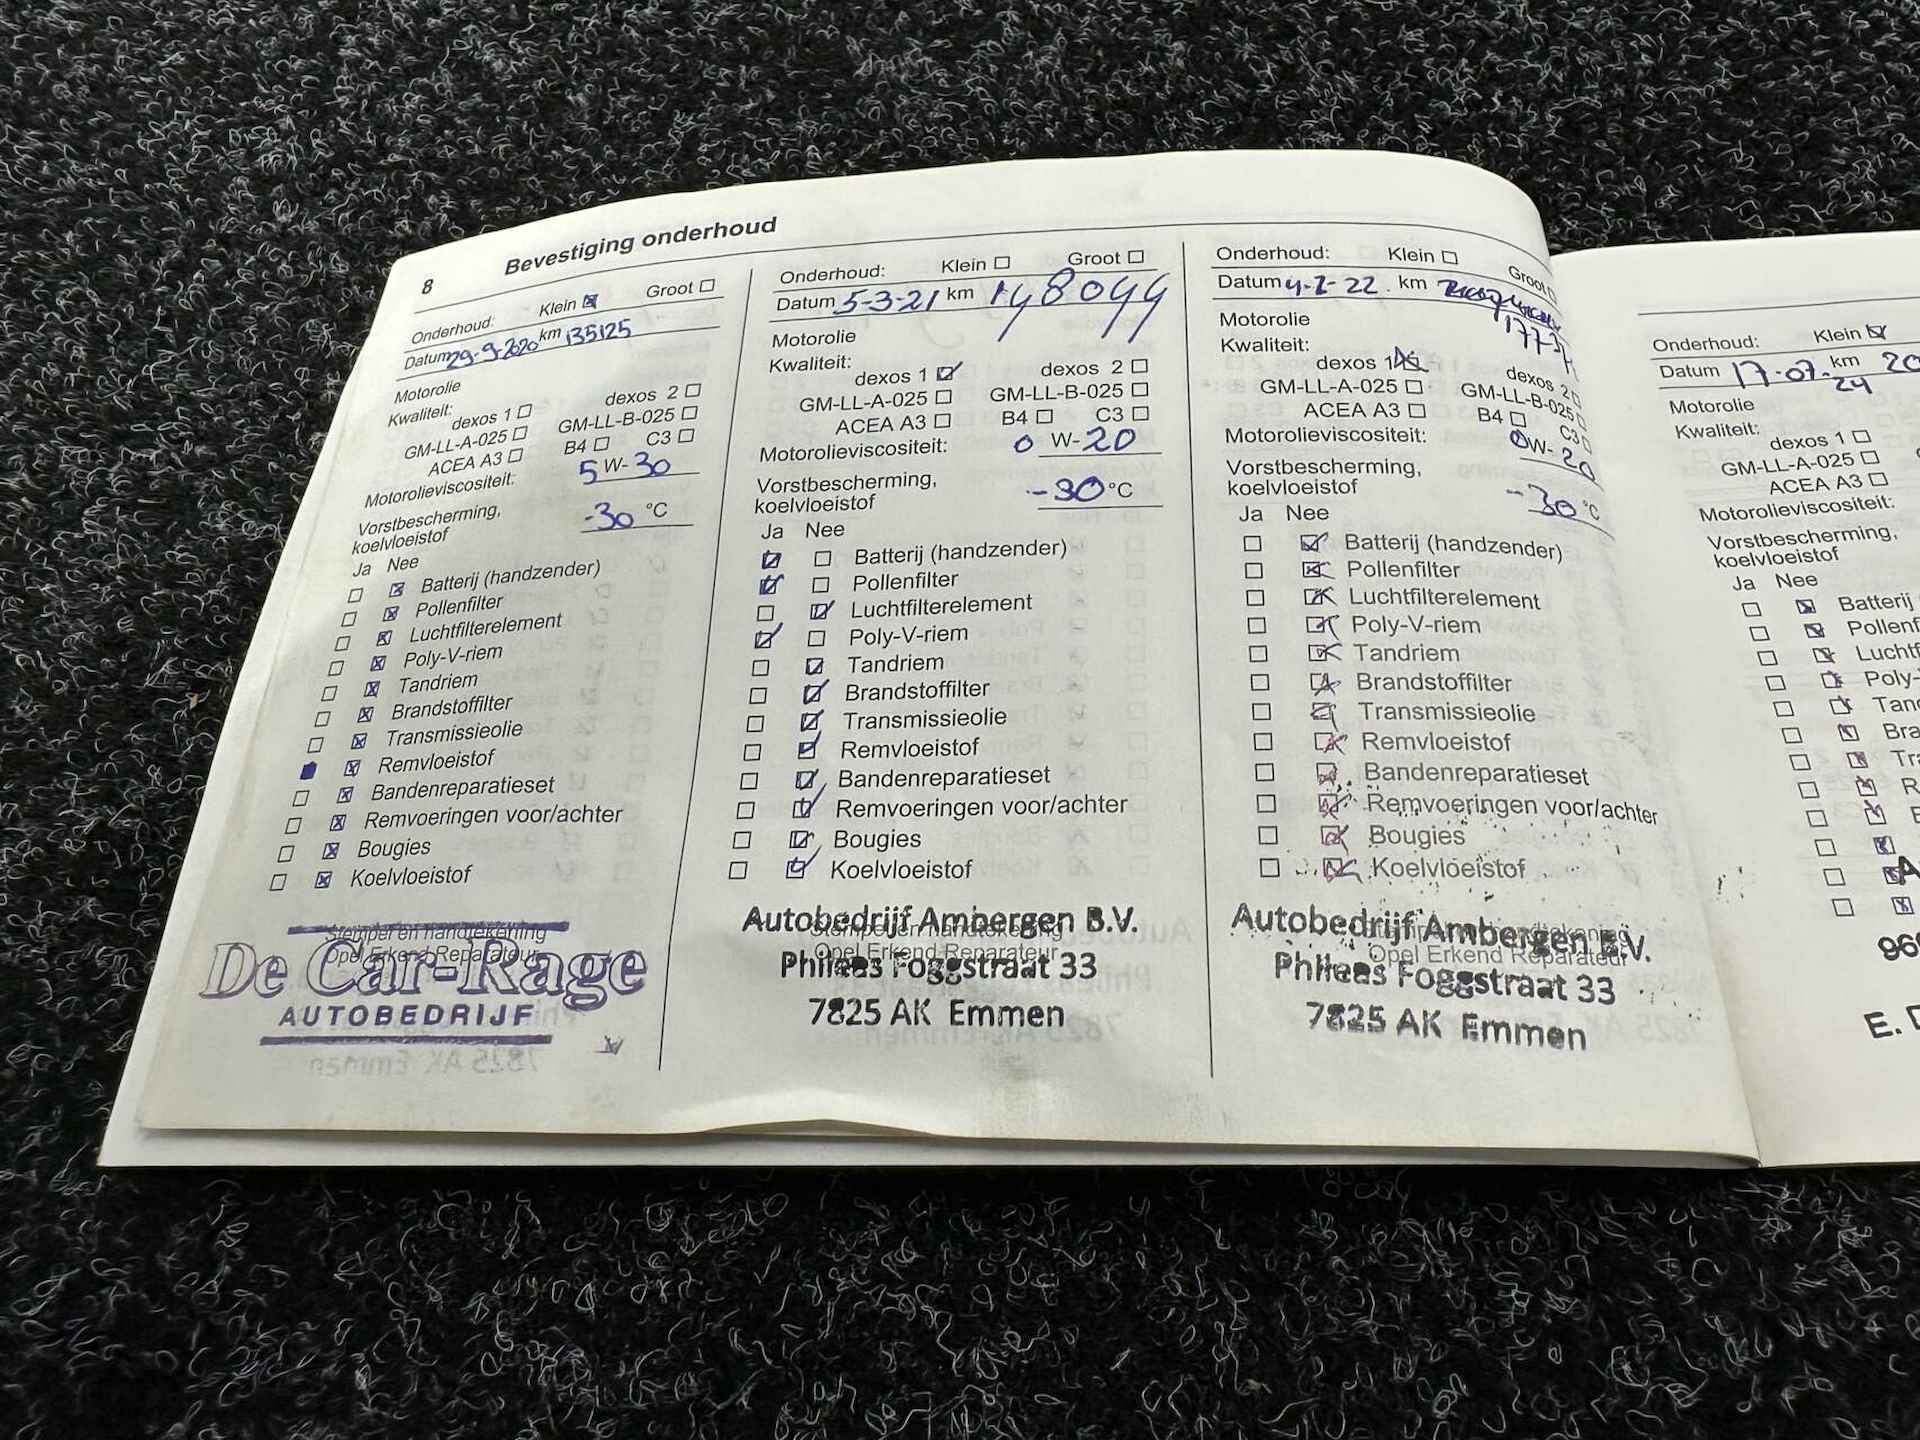 8 Bevestiging onderhoud
Onderhoud: Klein Groot
Datum 29-9-2020 km 135125
Motorolie
Kwaliteit:
dexos 1 dexos 2
GM-LL-A-025 GM-LL-B-025
ACEA A3 B4 C3
Motorolieviscositeit: 5 W-30
Vorstbescherming,
koelvloeistof -30 °C
Ja Nee
Batterij (handzender)
Pollenfilter
Luchtfilterelement
Poly-V-riem
Tandriem
Brandstoffilter
Transmissieolie
Remvloeistof
Bandenreparatieset
Remvoeringen voor/achter
Bougies
Koelvloeistof
Stempel en handtekening
Opel Erkend Reparateur
De Car-Rage
AUTOBEDRIJF
Onderhoud: Klein Groot
Datum 5-3-21 km 148044
Motorolie
Kwaliteit:
dexos 1 dexos 2
GM-LL-A-025 GM-LL-B-025
ACEA A3 B4 C3
Motorolieviscositeit: 0 W-20
Vorstbescherming,
koelvloeistof -30 °C
Ja Nee
Batterij (handzender)
Pollenfilter
Luchtfilterelement
Poly-V-riem
Tandriem
Brandstoffilter
Transmissieolie
Remvloeistof
Bandenreparatieset
Remvoeringen voor/achter
Bougies
Koelvloeistof
Stempel en handtekening
Opel Erkend Reparateur
Autobedrijf Ambergen B.V.
Phileas Foggstraat 33
7825 AK Emmen
Onderhoud: Klein Groot
Datum 4-2-22. km
Motorolie
Kwaliteit:
dexos 1 dexos 2
GM-LL-A-025 GM-LL-B-025
ACEA A3 B4 C3
Motorolieviscositeit: 0W-20
Vorstbescherming,
koelvloeistof -30 °C
Ja Nee
Batterij (handzender)
Pollenfilter
Luchtfilterelement
Poly-V-riem
Tandriem
Brandstoffilter
Transmissieolie
Remvloeistof
Bandenreparatieset
Remvoeringen voor/achter
Bougies
Koelvloeistof
Opel Erkend Reparateur
Autobedrijf Ambergen B.V.
Phileas Foggstraat 33
7825 AK Emmen
Onderhoud: Klein
Datum 17-07-24 km 20
Motorolie
Kwaliteit:
dexos 1
GM-LL-A-025
ACEA A3
Motorolieviscositeit:
Vorstbescherming,
koelvloeistof
Ja Nee
Batterij
Pollenf
Luchtf
Poly-
Tand
Bra
Tr
R
B
A
96
E. D